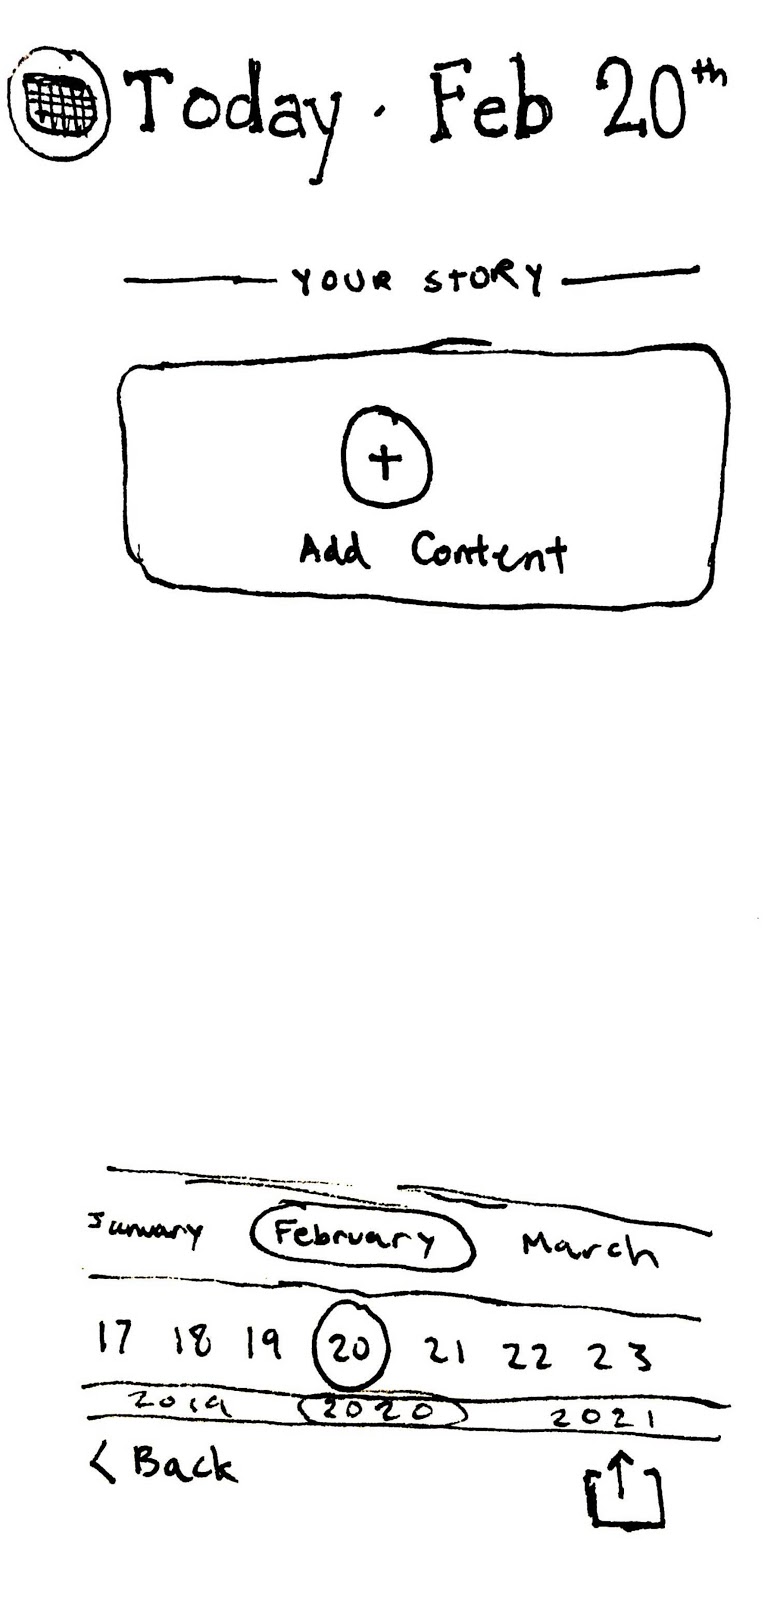 Today · Feb 20th
YOUR STORY
+
Add Content
January February March
17 18 19 20 21 22 23
2019 2020 2021
< Back